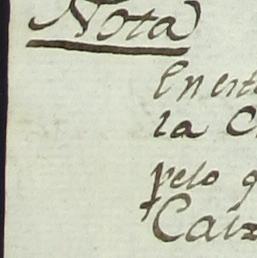 Nota
En est
la C
pelo q
Calz